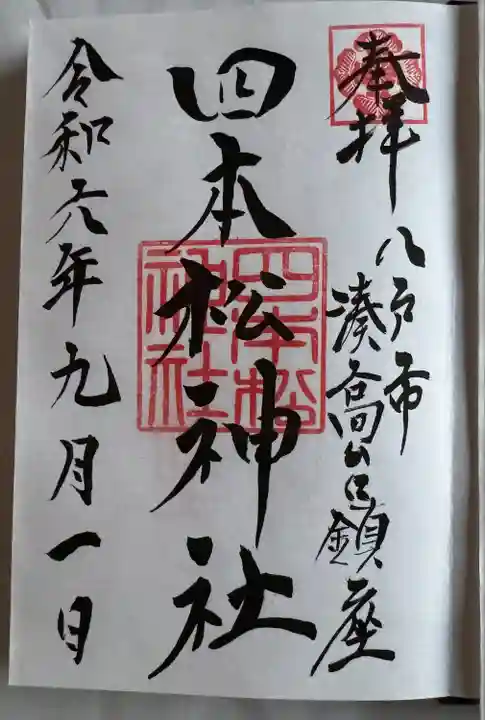 奉拝
八戸市
湊高台鎮座
四本松神社
四本松
神社
令和元年九月一日